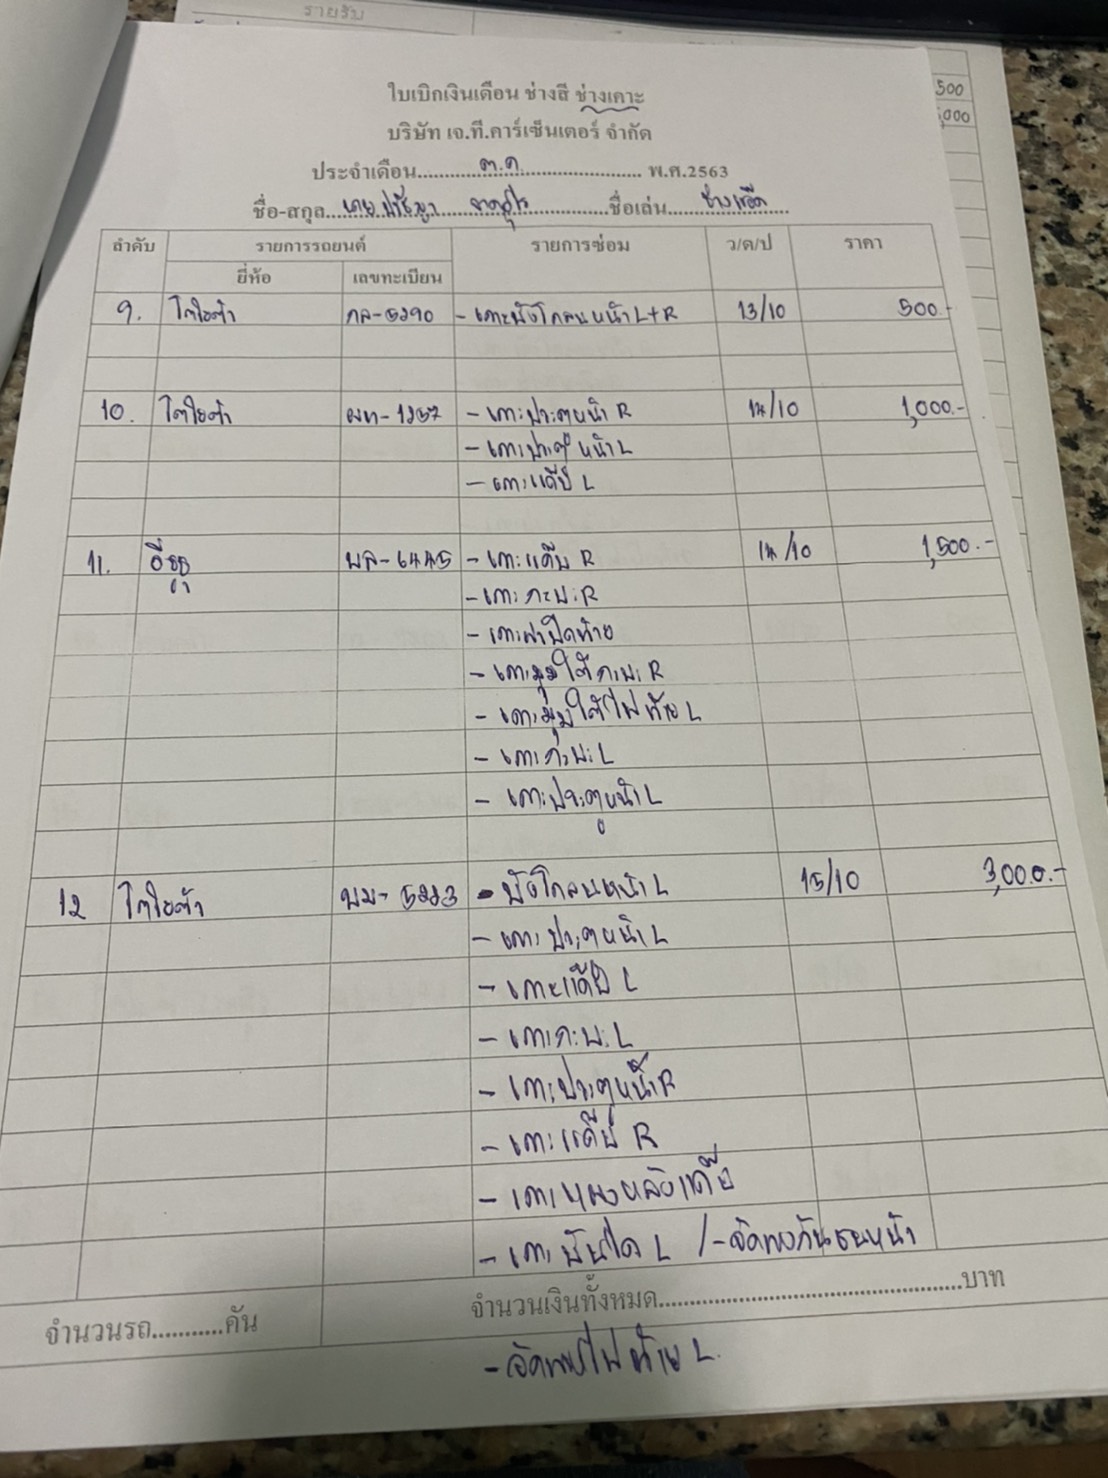 รายรับ
500
,000
ใบเบิกเงินเดือน ช่างสี ช่างเคาะ
บริษัท เจ.ที.คาร์เซ็นเตอร์ จำกัด
ประจำเดือน......ต.ค.......พ.ศ.2563
ชื่อ-สกุล...นาย.......ชื่อเล่น.....
ลำดับ รายการรถยนต์ รายการซ่อม ว/ด/ป ราคา
ยี่ห้อ เลขทะเบียน
9. โตโยต้า กล-5290 - เคาะบังโกลนหน้า L+R 13/10 500.-
10. โตโยต้า ผท-1257 - เคาะประตูหน้า R 14/10 1,000.-
- เคาะประตูหน้า L
- เคาะแค๊ป L
11. อีซูซุ บล-6445 - เคาะแค๊บ R 14/10 1,500.-
- เคาะกะบะ R
- เคาะฝาปิดท้าย
- เคาะมุมใต้กะบะ R
- เคาะมุมใต้ไฟท้าย L
- เคาะกะบะ L
- เคาะประตูหน้า L
12 โตโยต้า บม-5223 - บังโกลนหน้า L 15/10 3,000.-
- เคาะประตูหน้า L
- เคาะแค๊ป L
- เคาะกะบะ L
- เคาะประตูหน้า R
- เคาะแค๊ป R
- เคาะแผงหลังแค๊ป
- เคาะบันได L /-จัดทรงกันชนหน้า
จำนวนรถ...........คัน จำนวนเงินทั้งหมด..................................................บาท
- จัดทรงไฟท้าย L